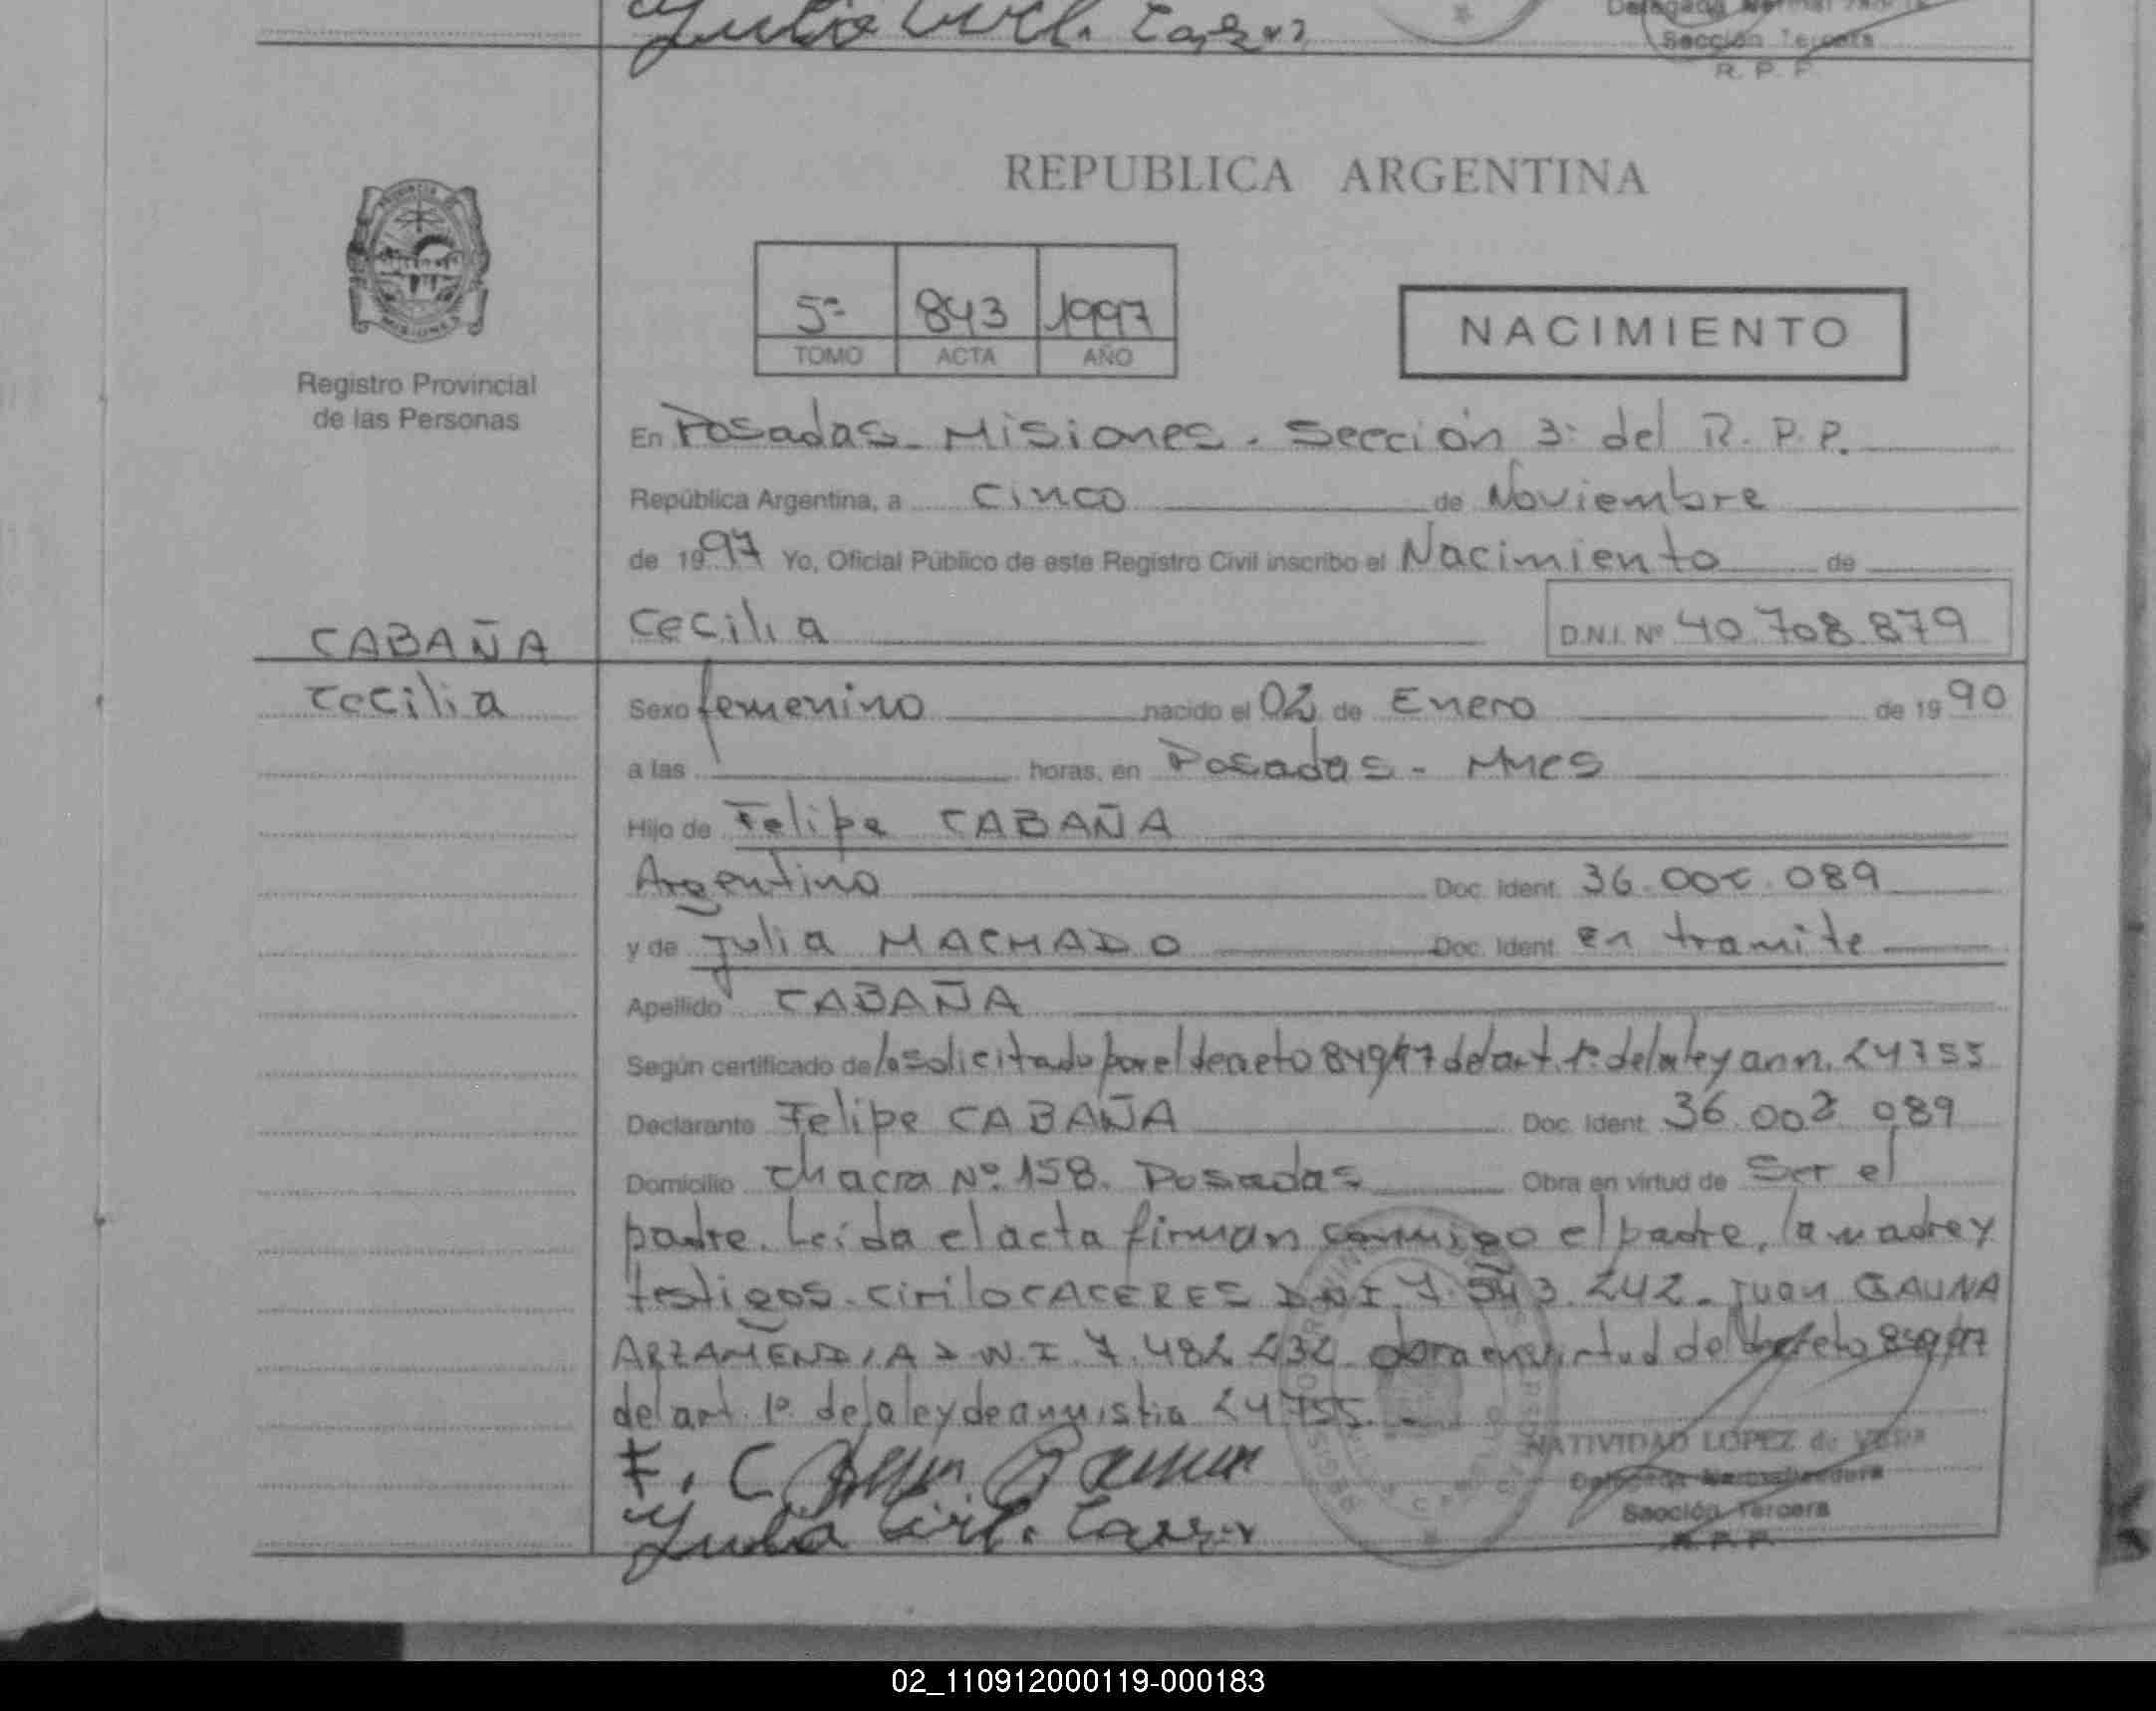 Julio Ciril. Caser
Sección Tercera
R. P. P.
REPUBLICA ARGENTINA
5ª 843 1997
TOMO ACTA AÑO
NACIMIENTO
Registro Provincial
de las Personas
En Posadas - Misiones. Sección 3ª del R. P. P.
República Argentina, a cinco de Noviembre
de 1997 Yo, Oficial Público de este Registro Civil inscribo el Nacimiento de
CABAÑA Cecilia D.N.I. Nº 40.708.879
Cecilia Sexo femenino nacido el 02 de Enero de 1990
a las horas, en Posadas - Mnes
Hijo de Felipe CABAÑA
Argentino Doc. Ident. 36.002.089
y de Julia MACHADO Doc. Ident. en tramite
Apellido CABAÑA
Según certificado de lo solicitado por el decreto 849/97 del art. 1º de la ley amn. 24755
Declarante Felipe CABAÑA Doc. Ident. 36.002.089
Domicilio Chacra Nº 158. Posadas Obra en virtud de Ser el
padre. Leída el acta firman conmigo el padre, la madre y
testigos. Cirilo CACERES D.N.I. 7.543.242 - Juan GAUNA
ARZAMENDIA D.N.I. 7.482.232 obra en virtud del decreto 849/97
del art. 1º de la ley de amnistia 24755. -
F. C
Julia Ciril.
NATIVIDAD LOPEZ de VERA
Sección Tercera
R. P. P.
02_110912000119-000183